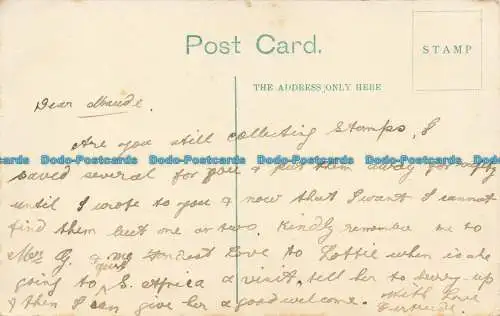 Post Card.
STAMP
THE ADDRESS ONLY HERE
Dear Maude.
Are you still collecting Stamps, I
Dodo-Postcards Dodo-Postcards Dodo-Postcards Dodo-Postcards Dodo-Postcards
saved several for you & put them away for
until I wrote to you & now that I want I cannot
find them but one or two. Kindly remember me to
Mrs G. & my kindest Love to Lottie when is she
going to give S. Africa a visit, tell her to hurry up
& then I can give her a good welcome. With Love
Gertrude.